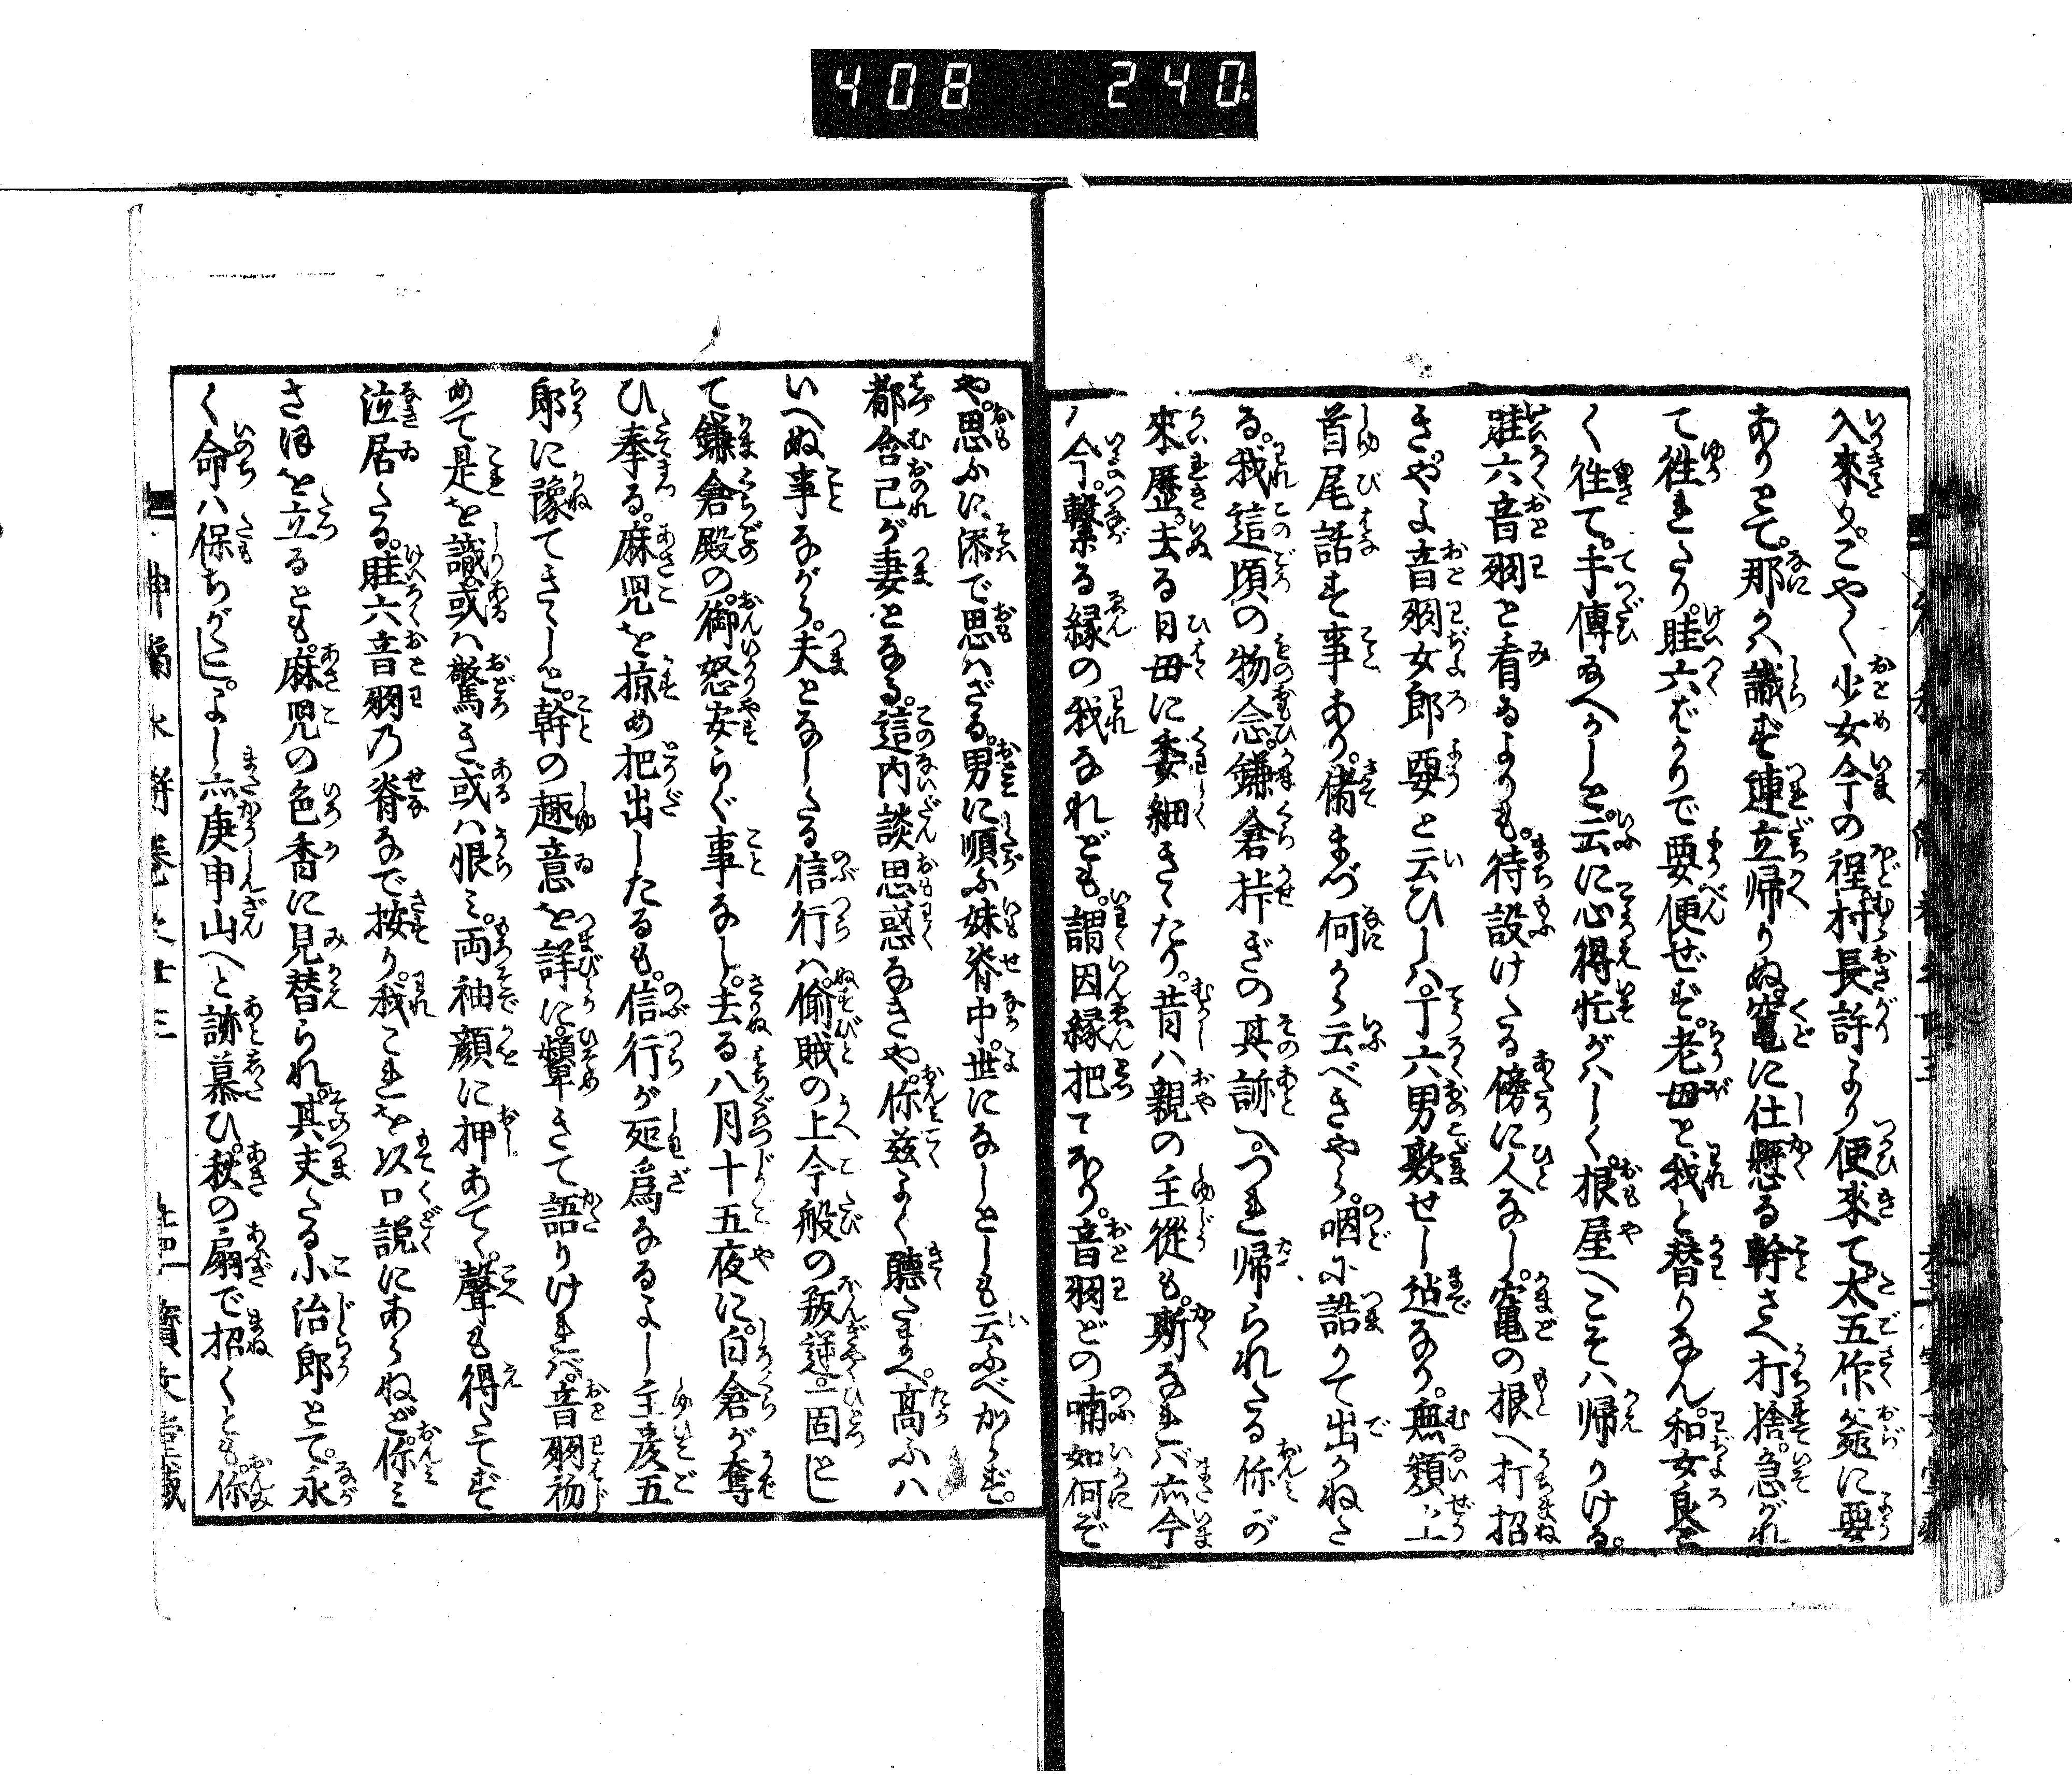 408 240
入來り。こやく少女今の程村長許より便来て。太五作爺に要
ありとて。那にかハ識ず連立帰りぬ。竃に仕懸る幹さへ打捨。急がれ
て徃れたり。畦六ばかりで要便ぜず。老母と我と替りなん。和女良
く徃て。手傳ねかしと。云に心得忙がハしく。根屋へこそハ帰りける。
畦六音羽と看るよりも。待設けたる傍に人なし。竃の根へ打招
き。やよ音羽女郎要と云ひしハ。丁六男歎せし迠なり。無類上
首尾話す事あり。偖まづ何から云べきやら。咽に詰りて出かねた
る。我這頃の物念。鎌倉挊ぎの其跡へ。つれ帰られたる你が
來歴。去る日母に委細きゝたり。昔ハ親の主從も。斯なれバ㡬今
ハ今。繋る縁の我なれども。謂因縁把てなり。音羽どの喃如何ぞ
や。思ふに添で思ハざる。男に順ふ妹脊中。世になしとしも云ふべからず。
都合己が妻となる。這内談思惑なきや。你茲よく聴たまへ。高ふハ
いへぬ事ながら。夫となしたる信行ハ。偷賊の上今般の叛逆。一固とし
て鎌倉殿の。御怒安らぐ事なし。去る八月十五夜に。白倉が奪
ひ奉る。麻児を掠め把出したるも。信行が所爲なるよし主彦五
郎に豫てきゝしと。幹の趣意を詳に。顰きて語りけれバ。音羽初
めて是を識。或ハ驚き或ハ恨ミ。両袖顔に押あてゝ。聲も得たてず
泣居たる。畦六音羽乃脊なで按り。我これを以口説にあらねど。你ミ
さほを立るとも。麻児の色香に見替られ。其夫たる小治郎とて。永
く命ハ保ちがたし。よし㡬庚申山へと跡慕ひ。秋の扇で招くとも。你